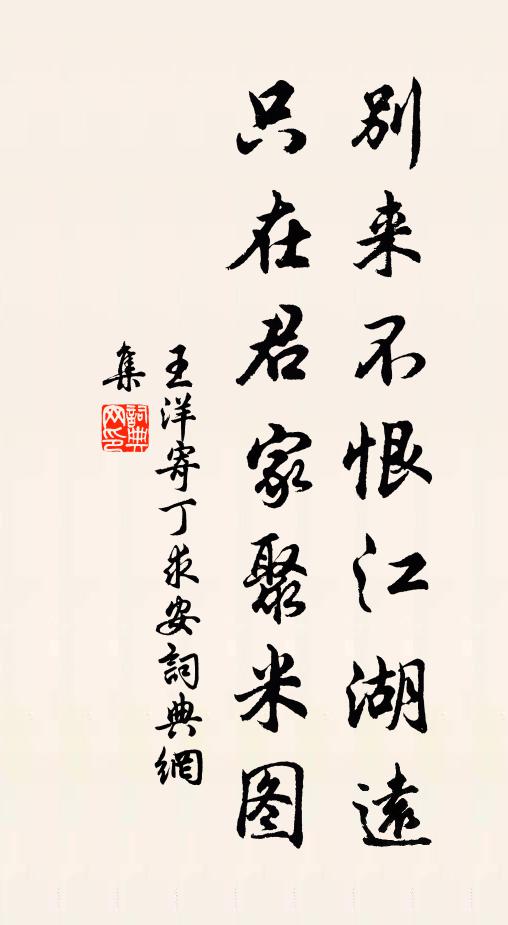 别来不恨江湖遠
只在君家聚米图
王洋寄丁求安詞典網
集
詞典網印